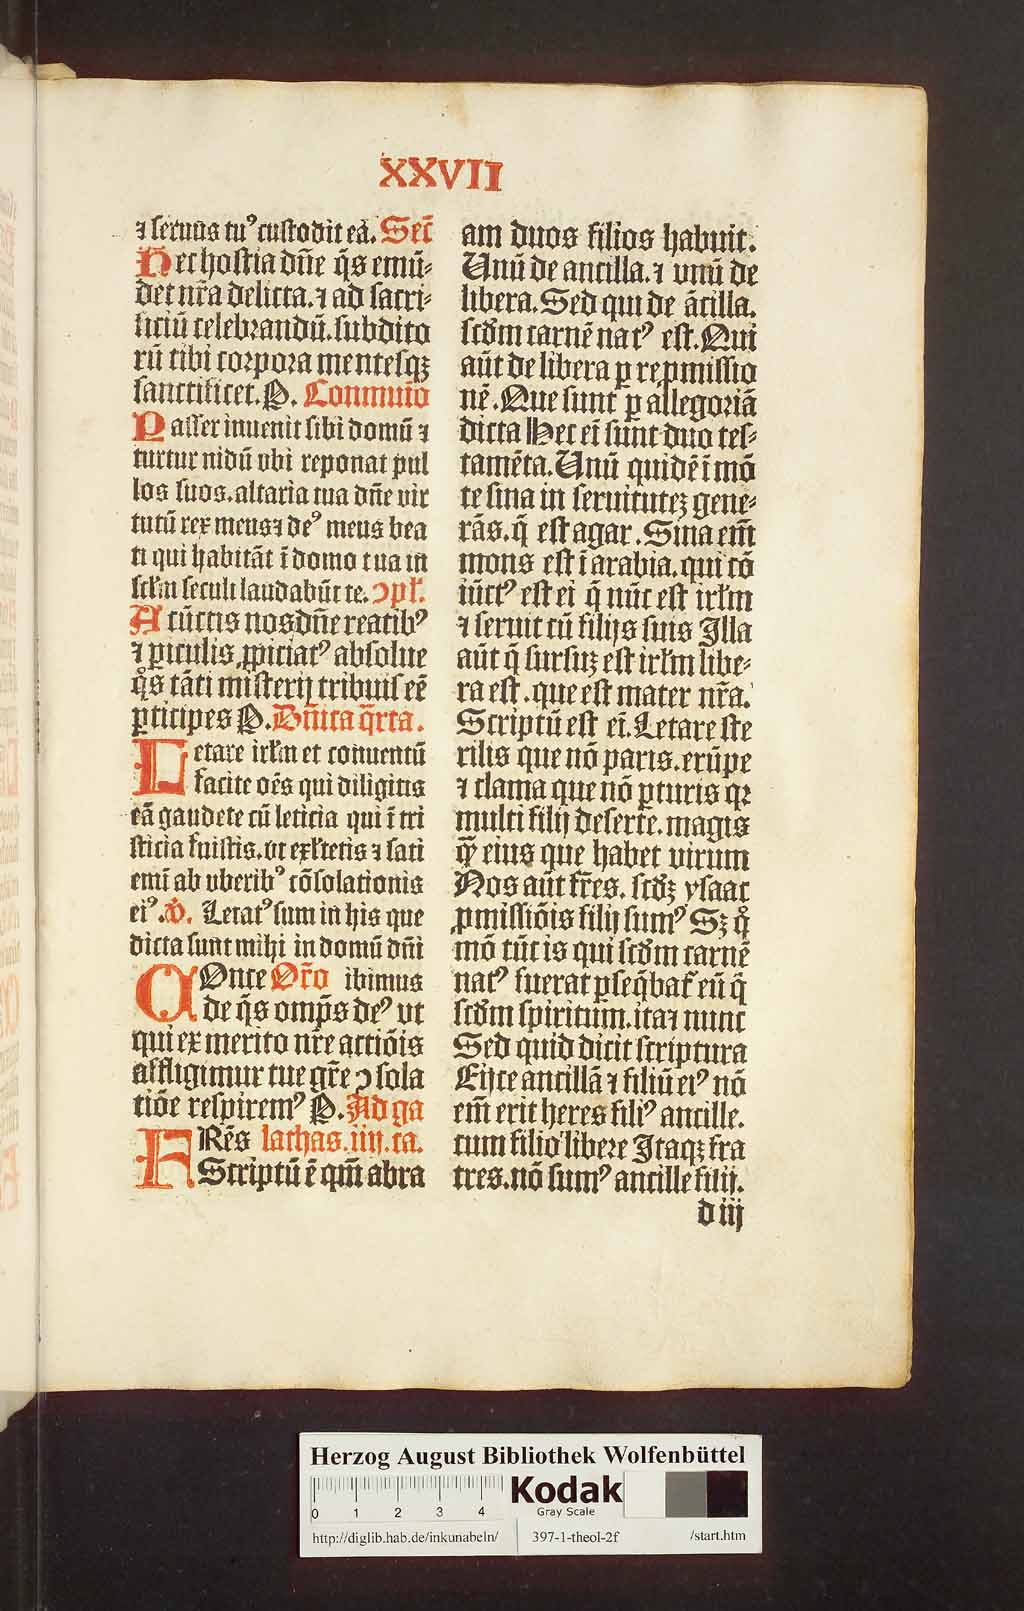 XXVII
⁊ seruus tuꝰ custodit eā. Sec̄
Hec hostia dn̄e q̄s emū⸗
det nr̄a delicta. ⁊ ad sacri⸗
ficiū celebrandū. subdito
rū tibi corpora mentesqꝫ
sanctificet. P. Commuīo
Passer inuenit sibi domū ⁊
turtur nidū vbi reponat pul
los suos. altaria tua dn̄e vir
tutū rex meus ⁊ deꝰ meus bea
ti qui habitāt ī domo tua in
scl̄m seculi laudabūt te. ꝯpl̄.
A cūctis nos dn̄e reatibꝰ
⁊ ꝑiculis ꝓpiciatꝰ absolue
q̄s tāti misterij tribuis eē
ꝑticipes P. Dn̄ica q̄rta.
Letare irl̄m et conuentū
facite oēs qui diligitis
eā gaudete cū leticia qui ī tri
sticia fuistis. vt exl̄tetis ⁊ sati
emī ab vberibꝰ cōsolationis
eiꝰ. V̄. Letatꝰ sum in his que
dicta sunt mihi in domū dn̄i
COnce Or̄o ibimus
de q̄s omp̄s deꝰ vt
qui ex merito nr̄e actiōis
affligimur tue gr̄e ꝯsola
tiōe respiremꝰ P. Ad ga
FRēs lathas. iiij. ca.
Scriptū ē qm̄ abra
am duos filios habuit.
Unū de ancilla. ⁊ vnū de
libera. Sed qui de ācilla.
scd̄m carnē natꝰ est. Qui
aūt de libera ꝑ repmissio
nē. Que sunt ꝑ allegoriā
dicta Hec ei̅ sunt duo tes⸗
tamēta. Unū quidē ī mō
te sina in seruituteꝫ gene⸗
rās. q̄ est agar. Sina em̄
mons est ī arabia. qui cō
iūctꝰ est ei q̄ nūc est irl̄m
⁊ seruit cū filijs suis Illa
aūt q̄ sursuꝫ est irl̄m libe⸗
ra est. que est mater nr̄a.
Scriptū est ei̅. Letare ste
rilis que nō paris. erūpe
⁊ clama que nō ꝑturis qꝛ
multi filij deserte. magis
qͣꝫ eius que habet virum
Nos aūt fr̄es. scd̄ꝫ ysaac
ꝓmissiōis filij sumꝰ Sꝫ qͦ
mō tūc is qui scd̄m carnē
natꝰ fuerat ꝑseq̄bat̄ eū q̄
scd̄m spiritum. ita ⁊ nunc
Sed quid dicit scriptura
Eijce ancillā ⁊ filiū eiꝰ nō
em̄ erit heres filiꝰ ancille.
cum filio libere Itaqꝫ fra
tres. nō sumꝰ ancille filij.
d iij
Herzog August Bibliothek Wolfenbüttel
0 1 2 3 4
Kodak
Gray Scale
http://diglib.hab.de/inkunabeln/ 397-1-theol-2f /start.htm